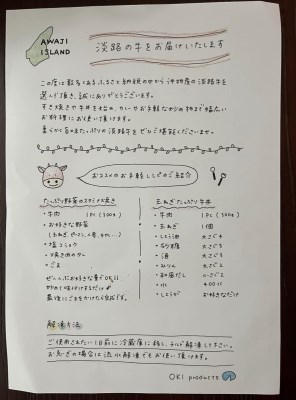 AWAJI
ISLAND
淡路の牛をお届けいたします
この度は数多くあるふるさと納税の中から沖物産の淡路牛を
選んで頂き、誠にありがとうございます。
すき焼きや牛丼を始め、カレーやお手軽なおかずまで幅広い
お料理にお使い頂けます。
柔らか旨みたっぷりの淡路牛をぜひご堪能くださいませ。
おススメのお手軽レシピのご紹介
たっぷり野菜のスタミナ焼き
・牛肉 1PC (300g)
・お好きな野菜
(玉ねぎ、ピーマン、人参、キャベ...)
・塩コショウ
・焼き肉のタレ
・ごま
ぜーんぶお好きな量でOK!!
炒めて味付けするだけ
最後にごまをかけたら完成です。
玉ねぎたっぷり牛丼
・牛肉 1PC (300g)
・玉ねぎ 1個
・しょう油 大さじ4
・お砂糖 大さじ3
・酒 大さじ2
・みりん 大さじ2
・和風だし 小さじ2
・水 400cc
・しょうが お好きなだけ
解凍方法
ご使用されたい1日前に冷蔵庫に移し、チルド解凍して下さい。
お急ぎの場合は流水解凍でもお使い頂けます。
OKI products